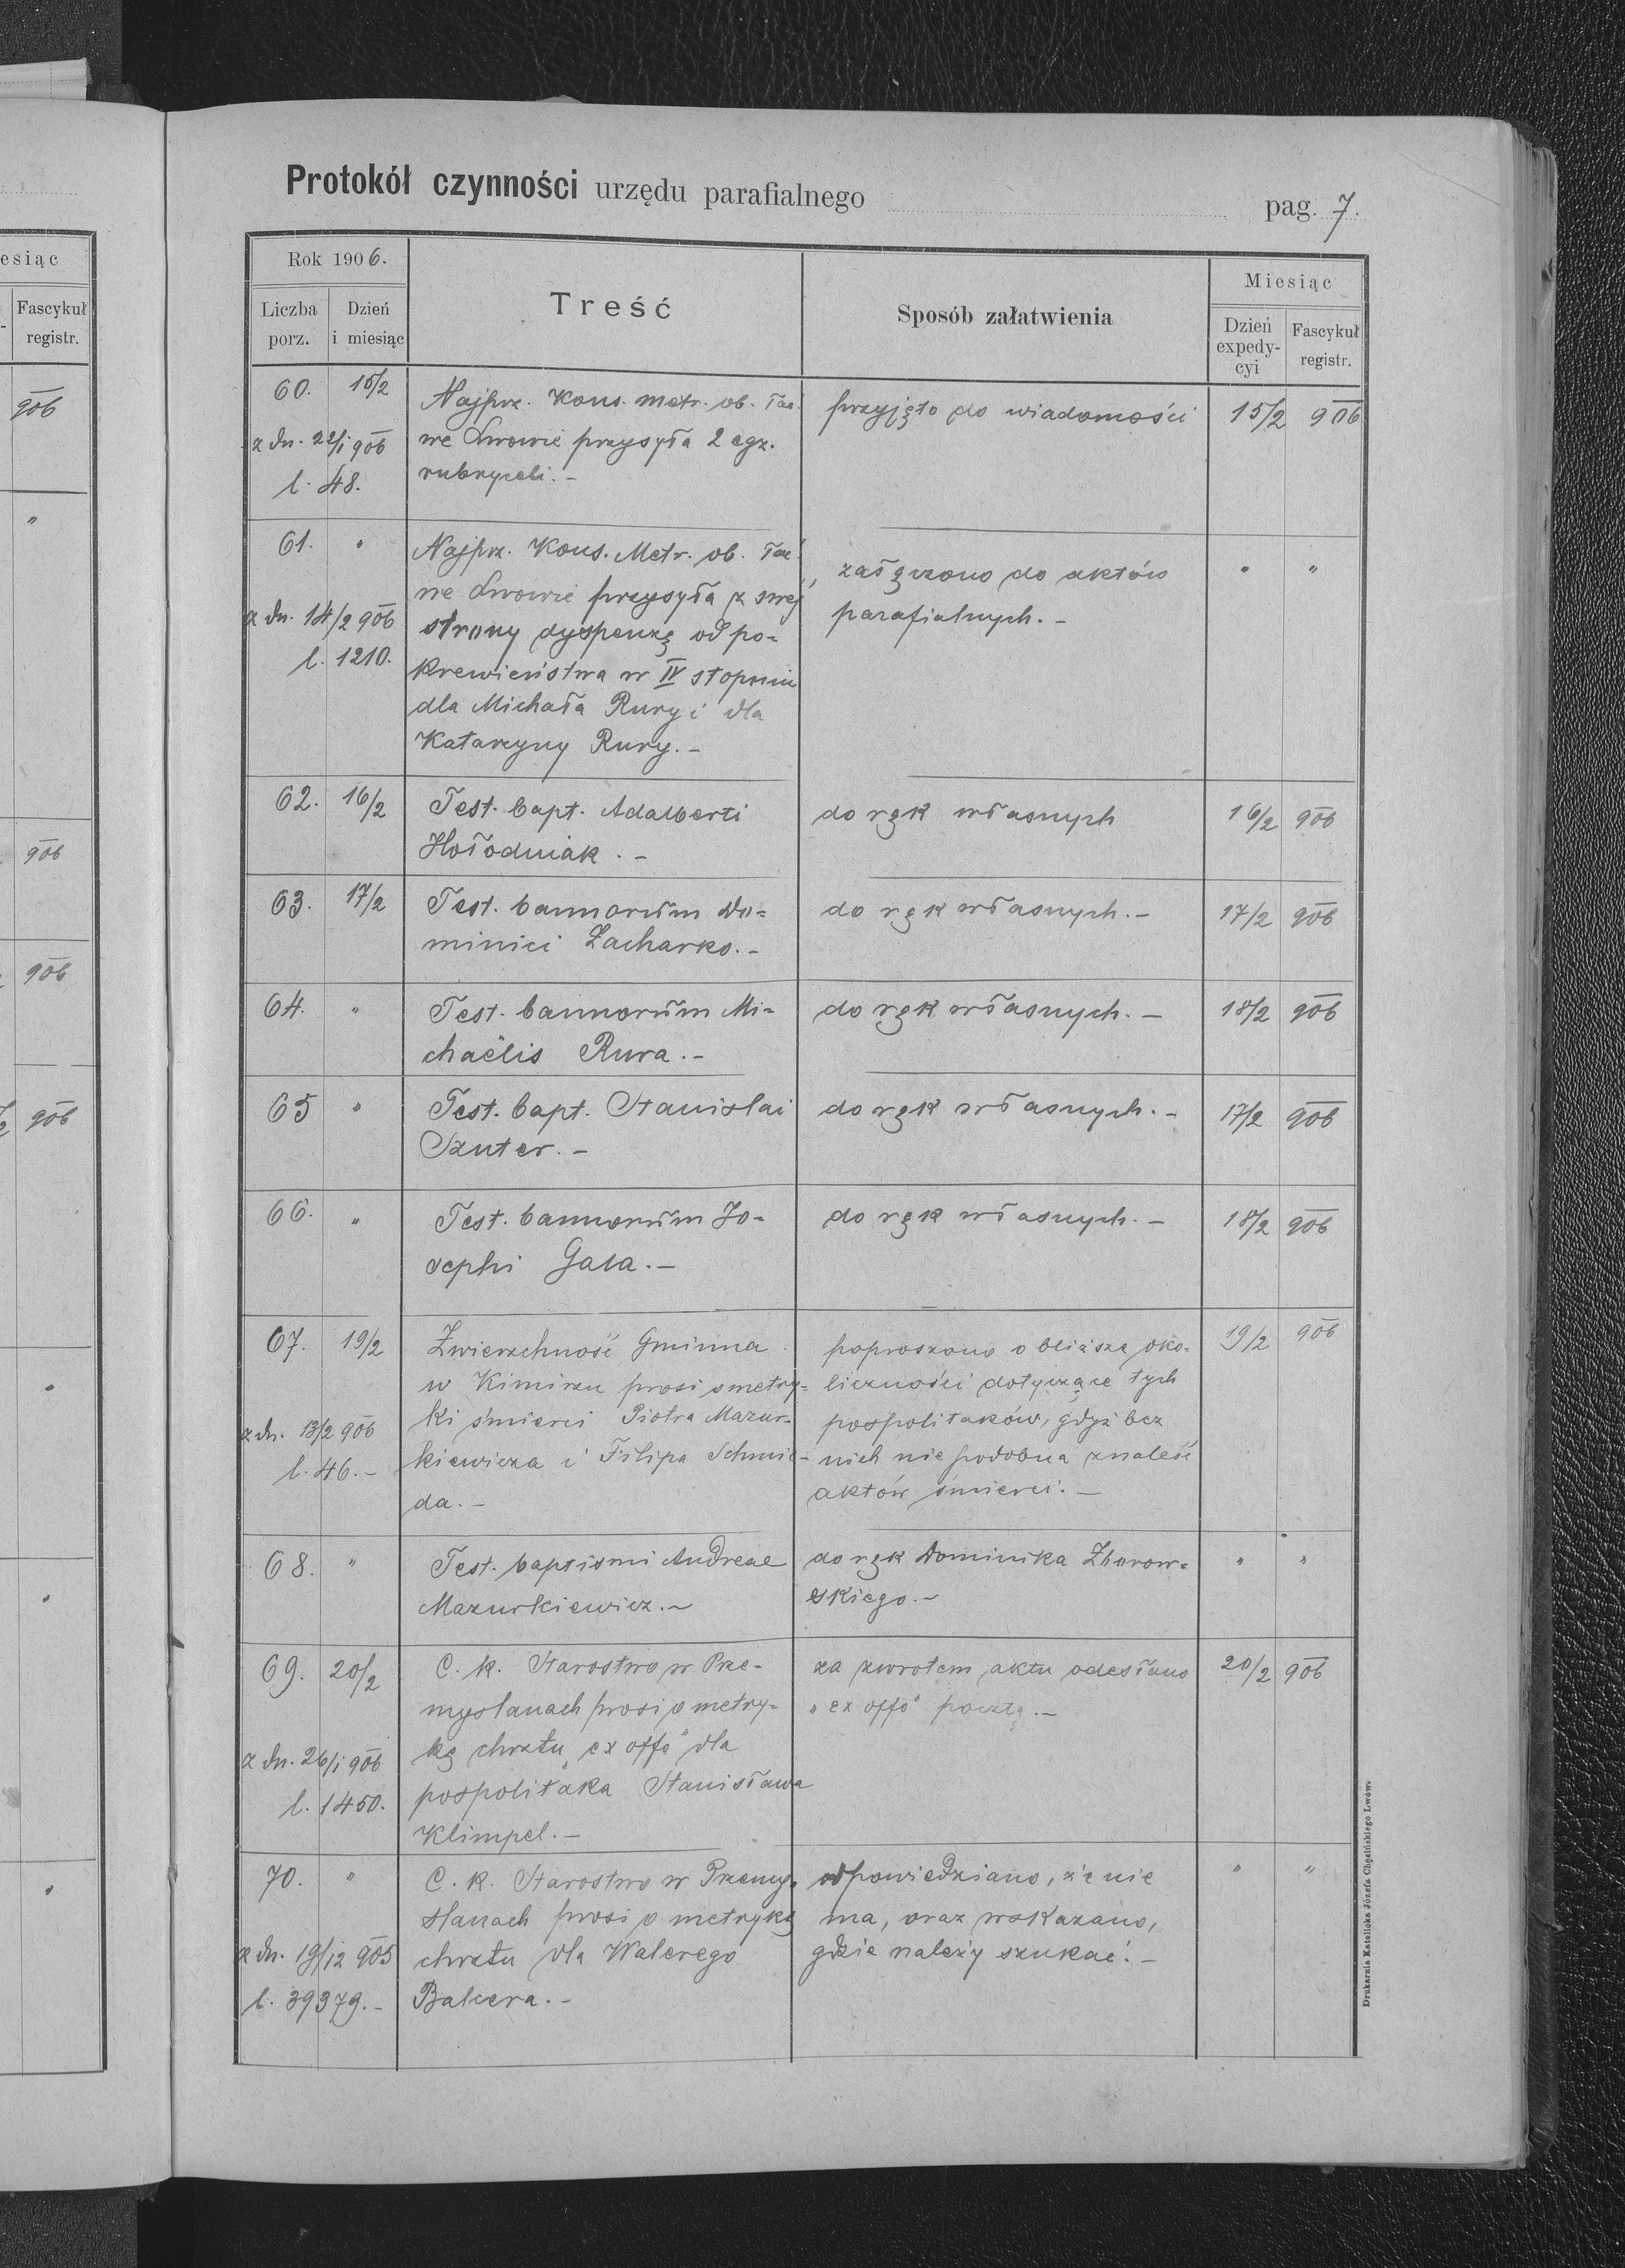 esiąc
Fascykuł
registr.
906
"
906
906
906
Protokół czynności urzędu parafialnego
pag. 7.
Rok 1906.
Liczba porz.
Dzień i miesiąc
Treść
Sposób załatwienia
Miesiąc
Dzień expedy-cyi
Fascykuł registr.
60. 15/2
z dn. 22/1 906
l. 48.
Najprz. Kons. metr. ob. łac.
we Lwowie przysyła 2 egz.
rubryceli. -
przyjęto do wiadomości
15/2 906
61. "
z dn. 14/2 906
l. 1210.
Najprz. Kons. Metr. ob. łac.
we Lwowie przysyła z swej
strony dyspenzę od po-
krewieństwa w IV stopniu
dla Michała Rury i dla
Katarzyny Rury. -
załączono do aktów
parafialnych. -
" "
62. 16/2
Test. bapt. Adalberti
Hołodniak. -
do rąk własnych
16/2 906
63. 17/2
Test. bannorum Do-
minici Zacharko. -
do rąk własnych. -
17/2 906
64. "
Test. bannorum Mi-
chaëlis Rura. -
do rąk własnych. -
18/2 906
65 "
Test. bapt. Stanislai
Szuter. -
do rąk własnych. -
17/2 906
66. "
Test. bannorum Jo-
sephi Gala. -
do rąk własnych. -
18/2 906
67. 19/2
z dn. 13/2 906
l. 46. -
Zwierzchność Gminna
w Kimirzu prosi o metry-
ki śmierci Piotra Mazur-
kiewicza i Filipa Schmi-
da. -
poproszono o bliższe oko-
liczności dotyczące tych
pospolitaków, gdyż bez
nich nie podobna znaleść
aktów śmierci. -
19/2 906
68. "
Test. baptismi Andreae
Mazurkiewicz. -
do rąk Dominika Zborow-
skiego. -
" "
69. 20/2
z dn. 26/1 906
l. 1450.
C. k. Starostwo w Prze-
myslanach prosi o metry-
kę chrztu „ex offo" dla
pospolitaka Stanisława
Klimpel. -
za zwrotem aktu odesłano
„ex offo" pocztą. -
20/2 906
70. "
z dn. 19/12 905
l. 39379. -
C. k. Starostwo w Przemy-
slanach prosi o metrykę
chrztu dla Walerego
Balcera. -
odpowiedziano, że nie
ma, oraz wskazano,
gdzie należy szukać. -
" "
Drukarnia Katolicka Józefa Chęcińskiego Lwów.